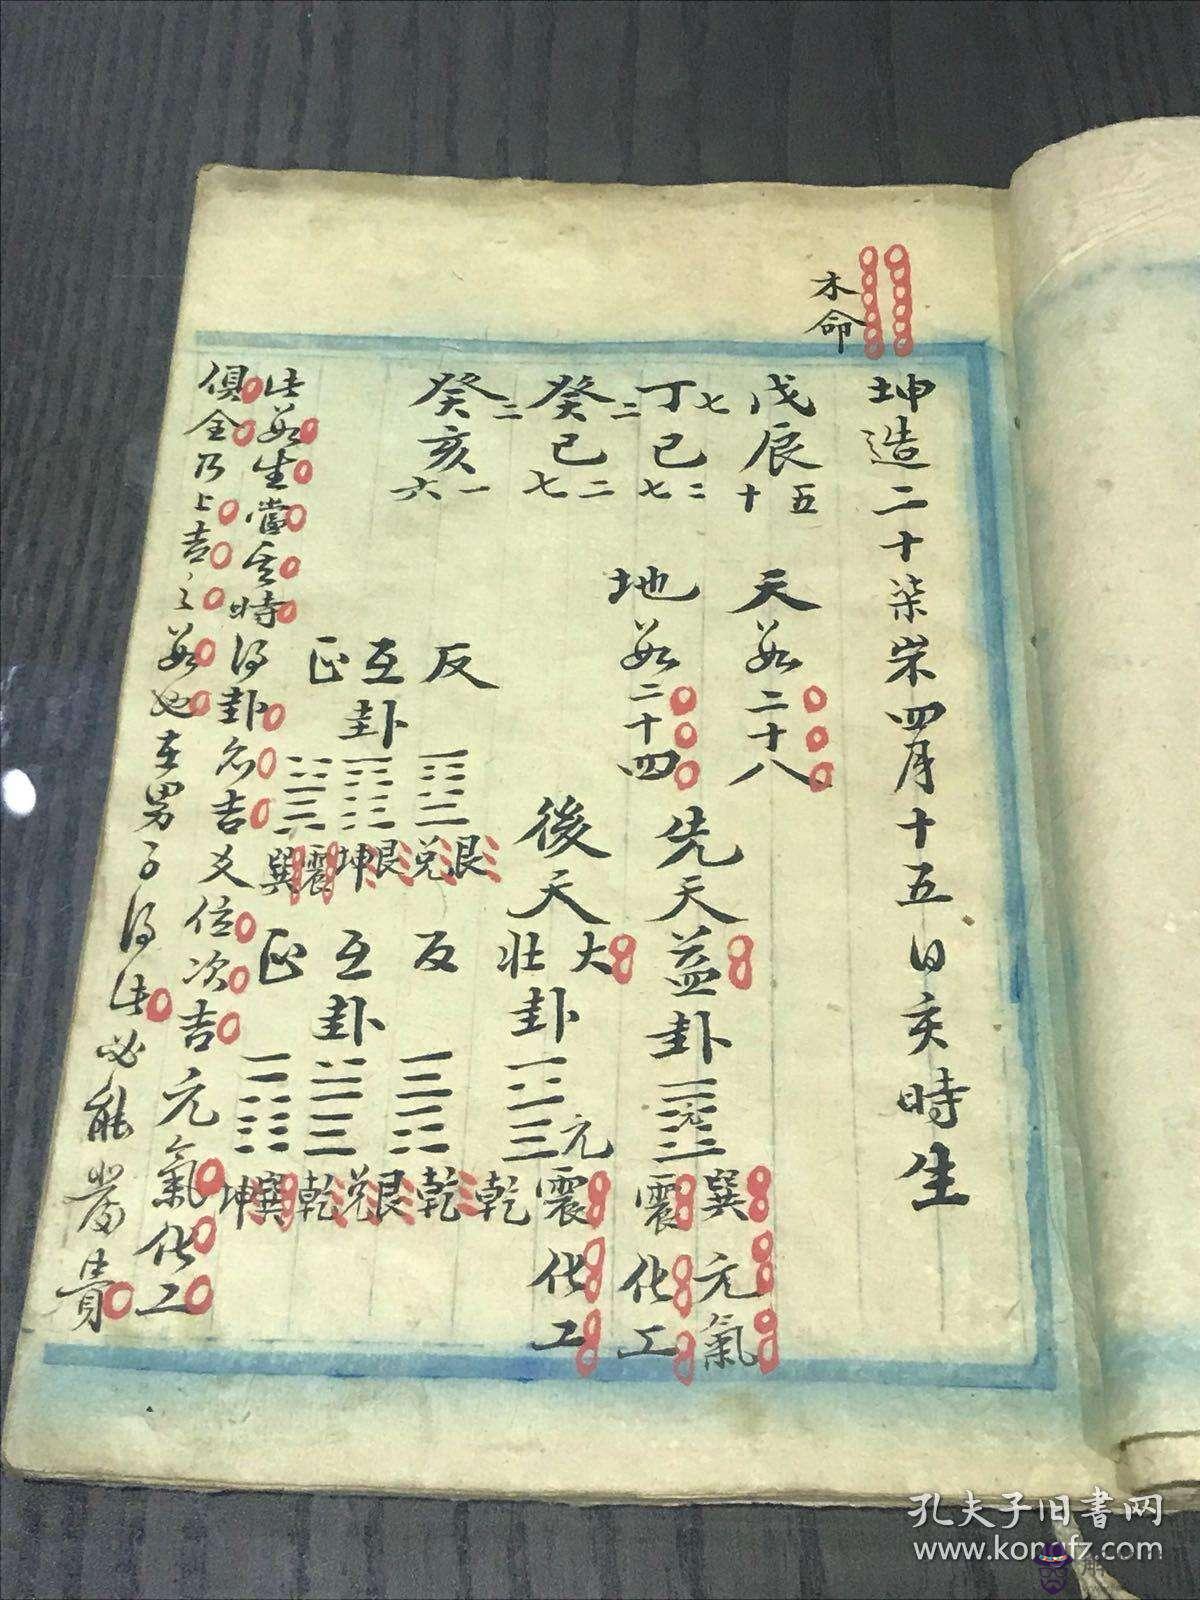 木命
坤造二十柒崇四月十五日亥時生
戊辰 十五
丁七巳 七二
癸二巳 七二
癸二亥 六一
天数二十八
地数二十四
先天益卦 元
巽元氣
震化工
後天大壯卦 元
震化工
乾
反 互卦 正
艮兌
艮坤
震巽
反 互卦 正
乾
艮兌
乾
巽坤
此数生當其時得卦名吉爻位次吉元氣化工
俱全乃上吉之数也在男子得此必能發貴
孔夫子旧書网
www.kongfz.com